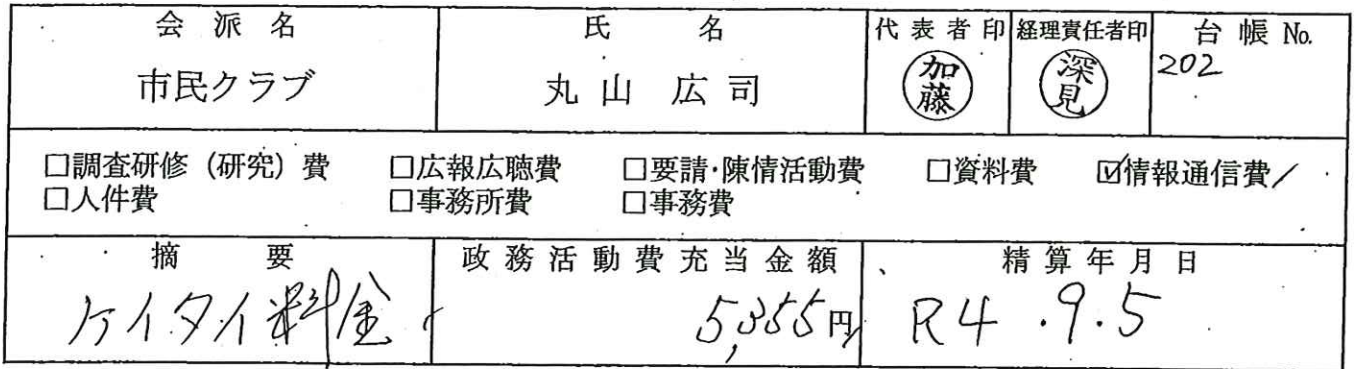 会派名 氏名 代表者印 経理責任者印 台帳 No.
市民クラブ 丸山 広司 加藤 深見 202
□調査研修（研究）費 □広報広聴費 □要請・陳情活動費 □資料費 ☑情報通信費
□人件費 □事務所費 □事務費
摘要 政務活動費充当金額 精算年月日
ケイタイ料金 5,355円 R4.9.5